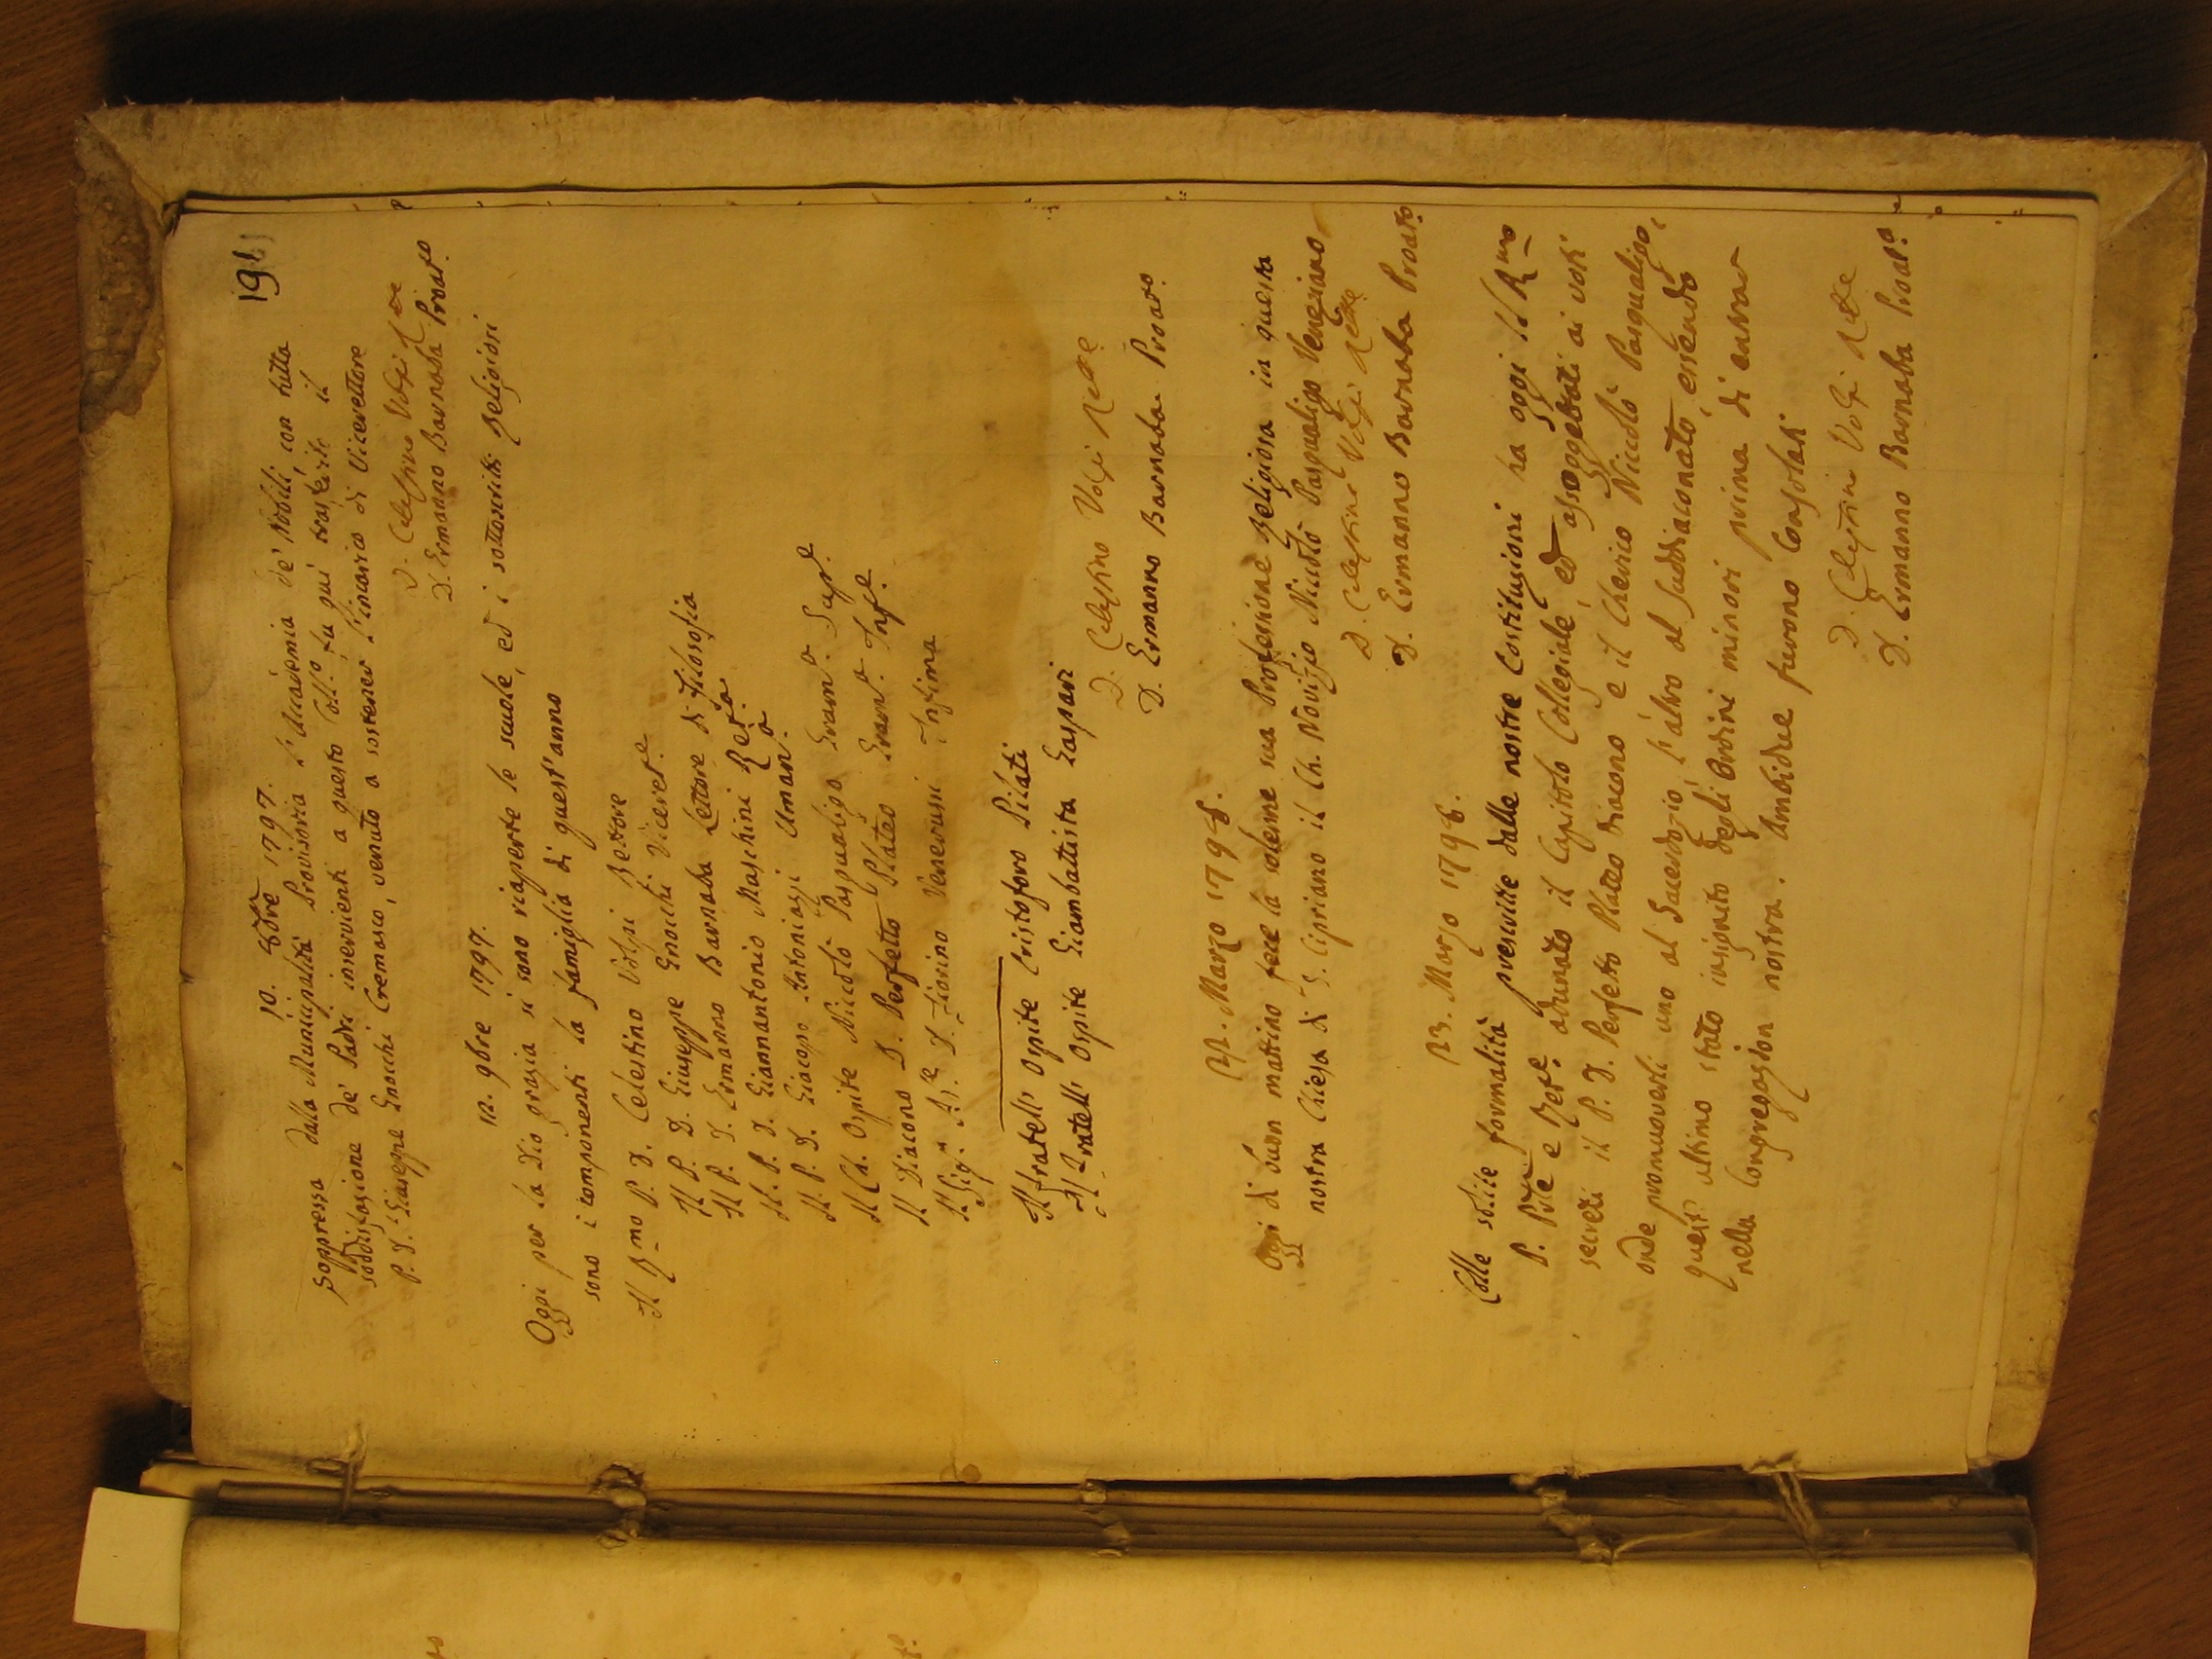 191
10. 8bre 1797.
Soppressa dalla Municipalità Provisoria l'Accademia de' Nobili, con tutta
soddisfazione de' Padri inservienti a questo Coll.o fu qui trasferito il
P. D. Giuseppe Gnocchi Cremasco, venuto a sostener l'incarico di Vicerettore
D. Celestino Volpi
D. Ermanno Barnaba Proat.o
12. 9bre 1797.
Oggi per la Dio grazia si sono riaperte le scuole, ed i sottoscritti Religiosi
sono i componenti la famiglia di quest'anno
Il Rmo P. D. Celestino Volpi Rettore
Il P. D. Giuseppe Gnocchi Viceret.e
Il P. D. Ermanno Barnaba Lettore di Filosofia
Il P. D. Giannantonio Maschini Ret.a
Il P. D. Giacopo Antoniazzi Uman.a
Il Ch. Ospite Niccolò Pasqualigo Gram.a Sup.e
Il Diacono D. Perfetto Plateo Gram.a Inf.e
Il Sig.r D. Fiorino Venerusi Infima
Il fratello Ospite Cristoforo Pilati
Il Fratello Ospite Giambattista Gaspari
D. Celestino Volpi Rette
D. Ermanno Barnaba Proat.o
Marzo 1798.
Oggi di buon mattino fece la solenne sua Professione Religiosa in questa
nostra Chiesa di S. Cipriano il Ch. Novizio Niccolò Pasqualigo Veneziano
D. Celestino Volpi Rette
D. Ermanno Barnaba Proat.o
Marzo 1798.
Colle solite formalità prescritte dalle nostre Costituzioni ha oggi il Rmo
P. Pste e Ret.e adunato il Capitolo Collegiale, ed assoggettati ai voti
secreti il P. D. Perfetto Plateo Diacono e il Cherico Niccolò Pasqualigo,
onde promuoverli uno al Sacerdozio, l'altro al Suddiaconato, essendo
quest' ultimo stato insignito degli Ordini minori prima di entrar
nella Congregazion nostra. Ambidue furono consolati
D. Celestino Volpi Rette
D. Ermanno Barnaba Proat.o